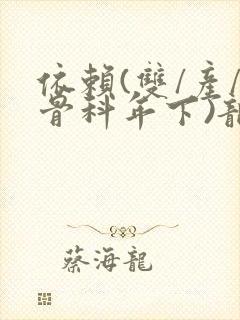 依賴(雙/產/
骨科年下)
蔡海龍